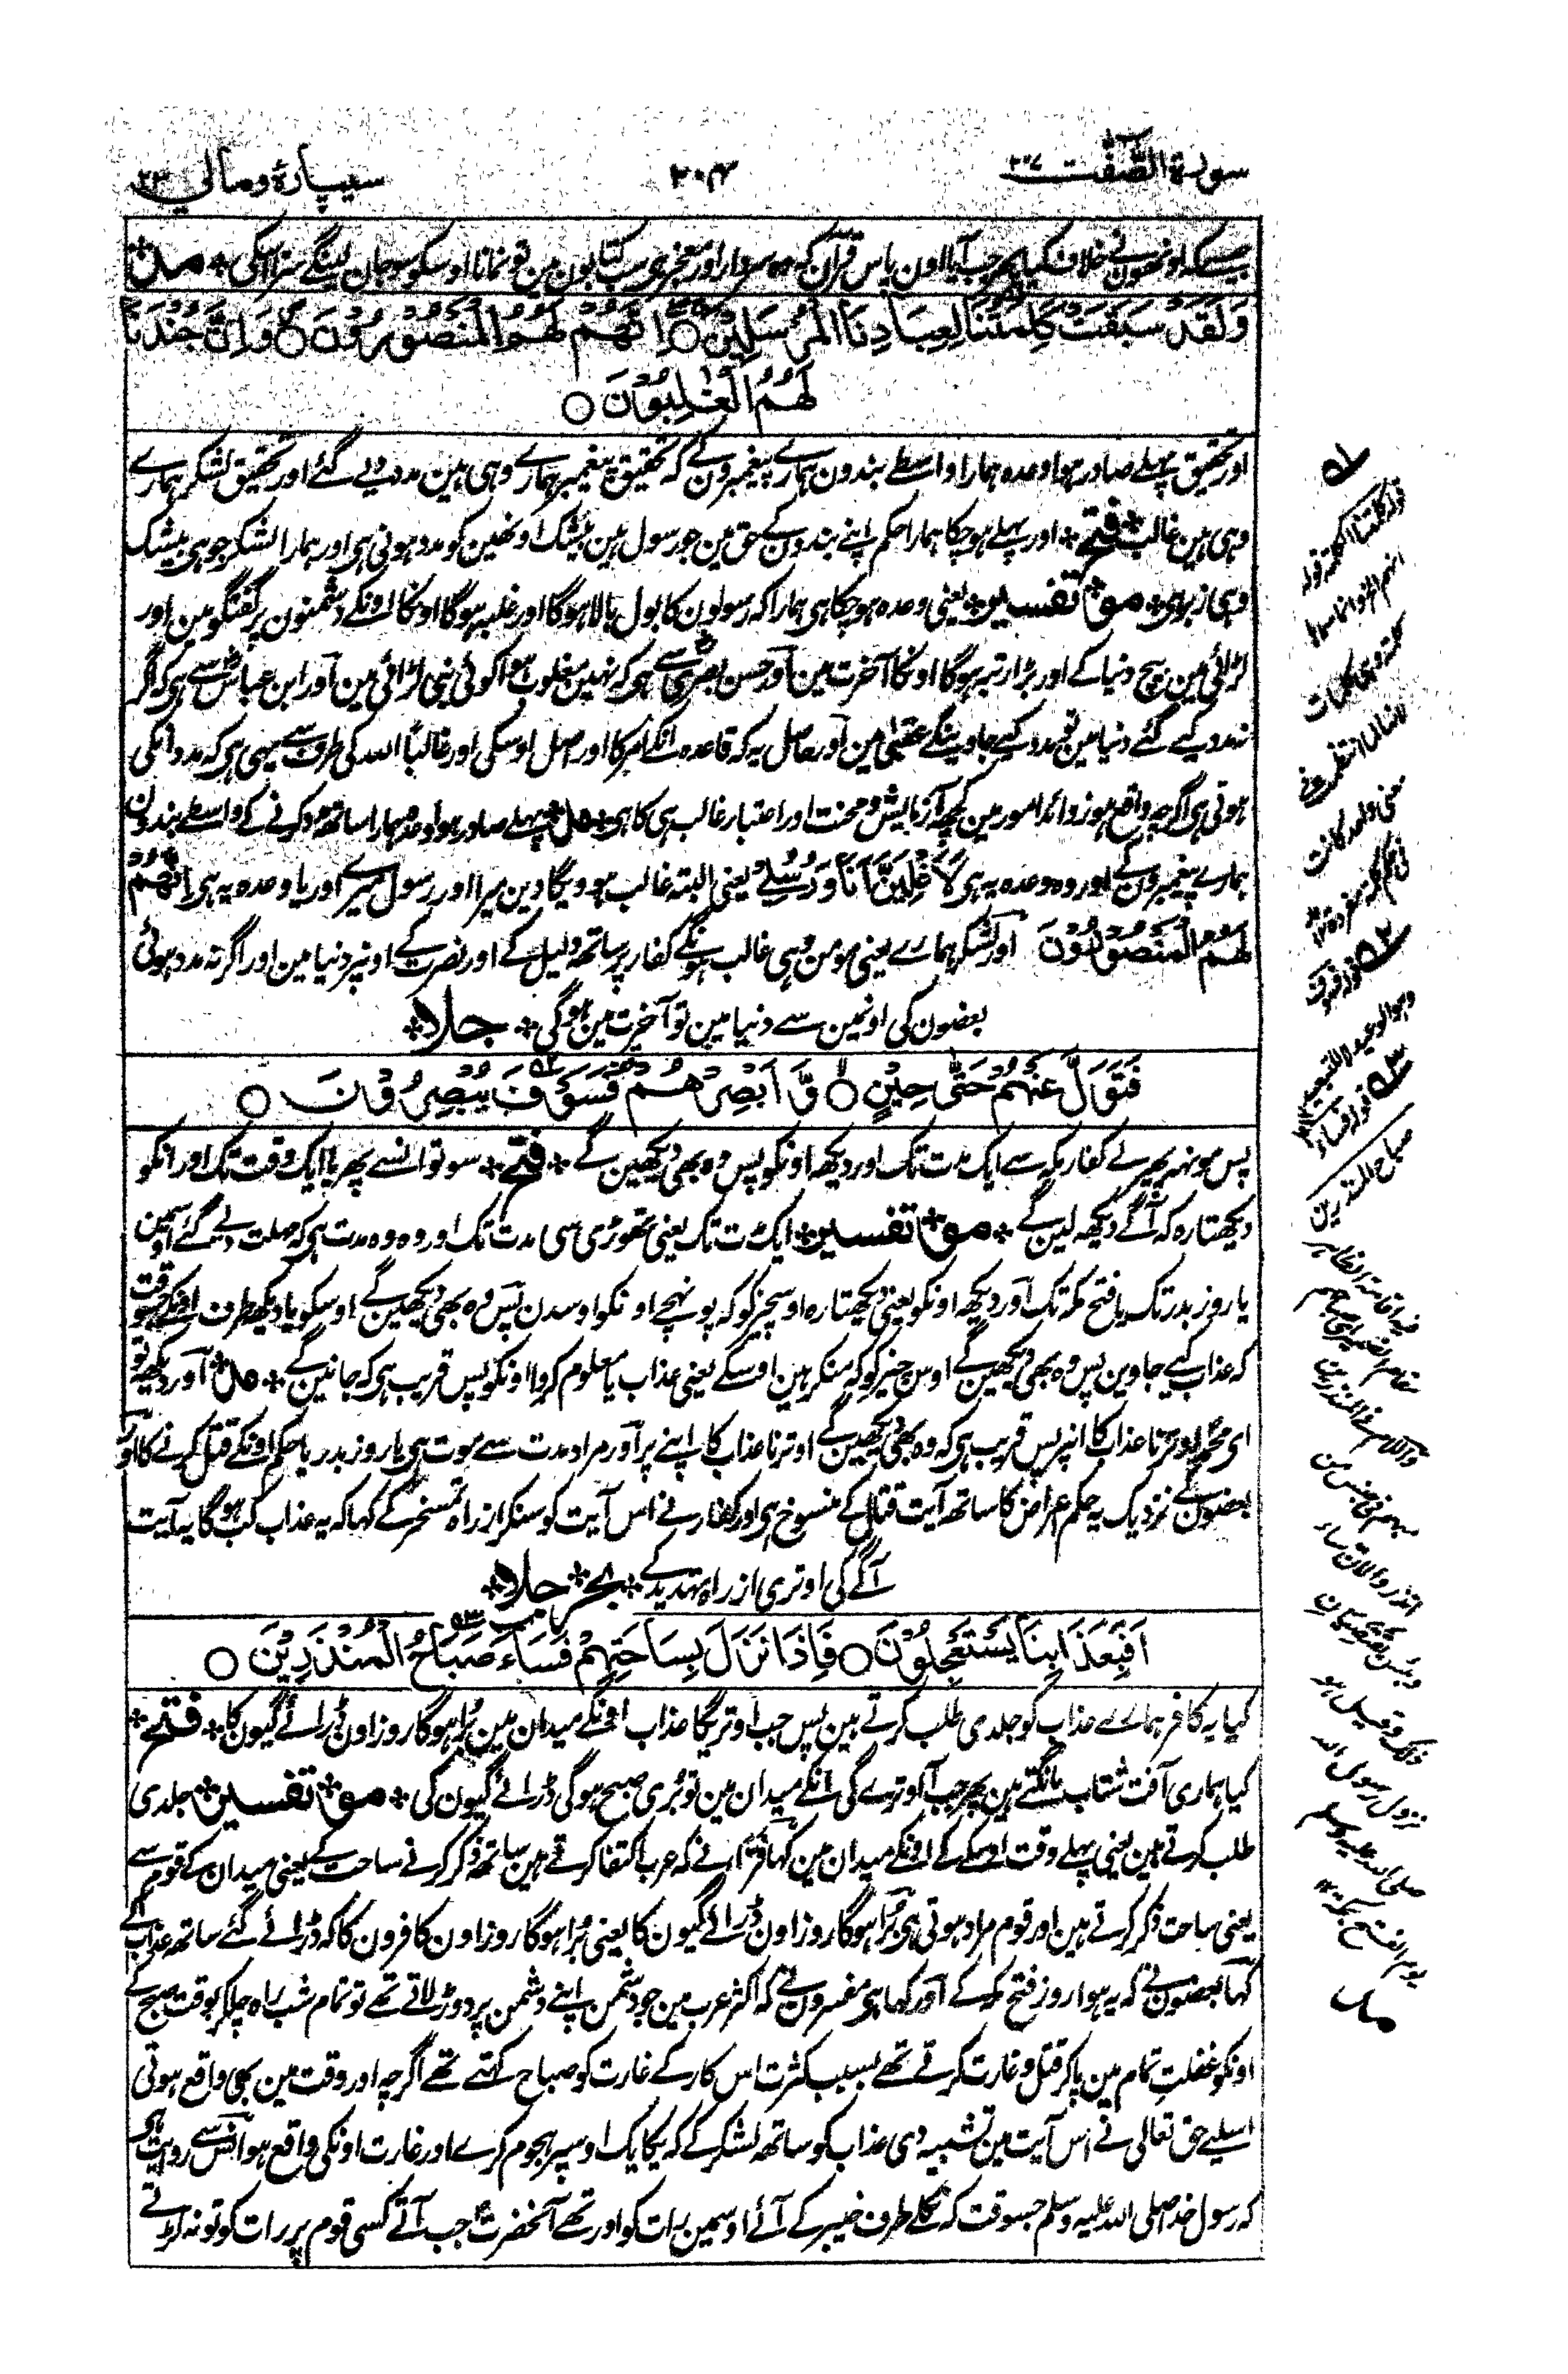 سورة الصّٰفّٰت ٣٧
٣٠٤
سیپارہ ومالی ٢٣
اونھون نے خلاف کیا پھر جب آیا اون پاس قرآن کہ سردار اور معجز ہی سب کتابون مین تو نمانا اوسکو سو جان لینگے سزا اسکی * مدن
وَلَقَدْ سَبَقَتْ كَلِمَتُنَا لِعِبَادِنَا الْمُرْسَلِيْنَ ○ اِنَّهُمْ لَهُمُ الْمَنْصُوْرُوْنَ ○ وَاِنَّ جُنْدَنَا
لَهُمُ الْغٰلِبُوْنَ ○
اور تحقیق پہلے صادر ہوا وعدہ ہمارا واسطے بندون ہمارے پیغمبرون کے کہ تحقیق پیغمبر ہمارے وہی ہین مدد دیے گئے اور تحقیق لشکر ہمارے
وہی ہین غالب * فتح * اور پہلے ہو چکا ہمارا حکم اپنے بندون کے حق مین جو رسول ہین بیشک اونھین کو مدد ہونی ہی اور ہمارا لشکر جو ہی بیشک
وہی زبر ہی * مو * تفسیر * یعنی وعدہ ہو چکا ہی ہمارا کہ رسولون کا بول بالا ہوگا اور غلبہ ہوگا اونکا اونکے دشمنون پر گفتگو مین اور
لڑائی مین بیچ دنیا کے اور بڑا رتبہ ہوگا اونکا آخرت مین اور حسن بصریؒ سے ہی کہ نہین مغلوب ہوا کوئی نبی لڑائی مین اور ابن عباسؓ سے ہی کہ اگر
نہ مدد کیے گئے دنیا مین تو مدد کیے جاوینگے عقبیٰ مین اور حاصل یہ کہ قاعدہ انکے امر کا اور اصل اوسکی اور غالباً اللہ کی طرف سے یہی ہی کہ مدد انکی
ہوتی ہی اگرچہ واقع ہوز وائد امور مین کچھ آزمایش و محنت اور اعتبار غالب ہی کا ہی * مد * پہلے صادر ہوا وعدہ ہمارا ساتھ مدد کرنے کے واسطے بندون
ہمارے پیغمبرون کے اور وہ وعدہ یہ ہی لَاَغْلِبَنَّ اَنَا وَرُسُلِيْ یعنی البتہ غالب ہوویگا دین میرا اور رسول میرے اور یا وعدہ یہ ہی اِنَّهُمْ
لَهُمُ الْمَنْصُوْرُوْنَ اور لشکر ہمارے یعنی مومن وہی غالب ہونگے کفار پر ساتھ دلیل کے اور نصرت کے اونپر دنیا مین اور اگر نہ مدد ہوئی
بعضون کی اونمین سے دنیا مین تو آخرت مین ہوگی * جلا *
فَتَوَلَّ عَنْهُمْ حَتّٰى حِيْنٍ ○ وَّاَبْصِرْهُمْ فَسَوْفَ يُبْصِرُوْنَ ○
پس مونہہ پھیر لے کفار مکہ سے ایک مدت تک اور دیکھہ اونکو پس وہ بھی دیکھین گے * فتح * سو تو انسے پھر یا ایک وقت تک اور انکو
دیکھتا رہ کہ آگے دیکھہ لین گے * مو * تفسیر * ایک مدت تک یعنی تھوڑی سی مدت تک اور وہ وہ مدت ہی کہ مہلت دیے گئے اوسمین
یا روز بدر تک یا فتح مکہ تک اور دیکھہ اونکو یعنی دیکھتا رہ اوس چیز کو کہ پونہچے اونکو اوسدن پس وہ بھی دیکھین گے اوسکو یا دیکھ طرف اونکے جسوقت
کہ عذاب کیے جاوین پس وہ بھی دیکھین گے اوس چیز کو کہ منکر ہین اوسکے یعنی عذاب یا معلوم کروا اونکو پس قریب ہی کہ جانین گے * مد * اور دیکھہ تو
ای محمدؐ اوترنا عذاب کا انپر پس قریب ہی کہ وہ بھی دیکھین گے اوترنا عذاب کا اپنے پر اور مراد مدت سے موت ہی یا روز بدر یا حکم اونکے قتل کرنے کا اور
بعضون کے نزدیک یہ حکم اعراض کا ساتھ آیت قتال کے منسوخ ہی اور کفار نے اس آیت کو سنکر از راہ تمسخر کے کہا کہ یہ عذاب کب ہوگا یہ آیت
آگے کی اوتری از راہ تہدید کے * بحر * جلا *
اَفَبِعَذَابِنَا يَسْتَعْجِلُوْنَ ○ فَاِذَا نَزَلَ بِسَاحَتِهِمْ فَسَآءَ صَبَاحُ الْمُنْذَرِيْنَ ○
کیا یہ کافر ہمارے عذاب کو جلدی طلب کرتے ہین پس جب اوتریگا عذاب اونکے میدان مین بُرا ہوگا روز اون ڈرائے گیون کا * فتح *
کیا ہماری آفت شتاب مانگتے ہین پھر جب اوترے گی انکے میدان مین تو بُری صبح ہوگی ڈرائے گیون کی * مو * تفسیر * جلدی
طلب کرتے ہین یعنی پہلے وقت اوسکے کے اونکے میدان مین کہا فرّاؒ نے کہ عرب اکتفا کرتے ہین ساتھ ذکر کرنے ساحت کے یعنی میدان کے قوم سے
یعنی ساحت ذکر کرتے ہین اور قوم مراد ہوتی ہی بُرا ہوگا روز اون ڈرائے گیون کا یعنی بُرا ہوگا روز اون کافرون کا کہ ڈرائے گئے ساتھ عذاب کے
کہا بعضون نے کہ یہ ہوا روز فتح مکہ کے اور کہا ہی مفسرون نے کہ اکثر عرب مین جو دشمن اپنے دشمن پر دوڑ لاتے تھے تو تمام شب راہ چلکر بوقت صبح کے
اونکو غفلتِ تمام مین پا کر قتل و غارت کرتے تھے بسبب کثرت اس کار کے غارت کو صباح کہتے تھے اگرچہ اور وقت مین بھی واقع ہوتی
اسلیے حق تعالی نے اس آیت مین تشبیہ دی عذاب کو ساتھ لشکر کے کہ یکایک اوسپر ہجوم کرے اور غارت اونکی واقع ہو انسؓ سے روایت ہی
کہ رسول خدا صلی اللہ علیہ وسلم جسوقت کہ نکلے طرف خیبر کے آئے اوسمین رات کو اور تھے آنحضرتؐ جب آتے کسی قوم پر رات کو تو نہ لڑتے
صباح المنذرین
نزول رسول اللہ
صلی اللہ علیہ وسلم
یوم الفتح بمکة ١٢
مد